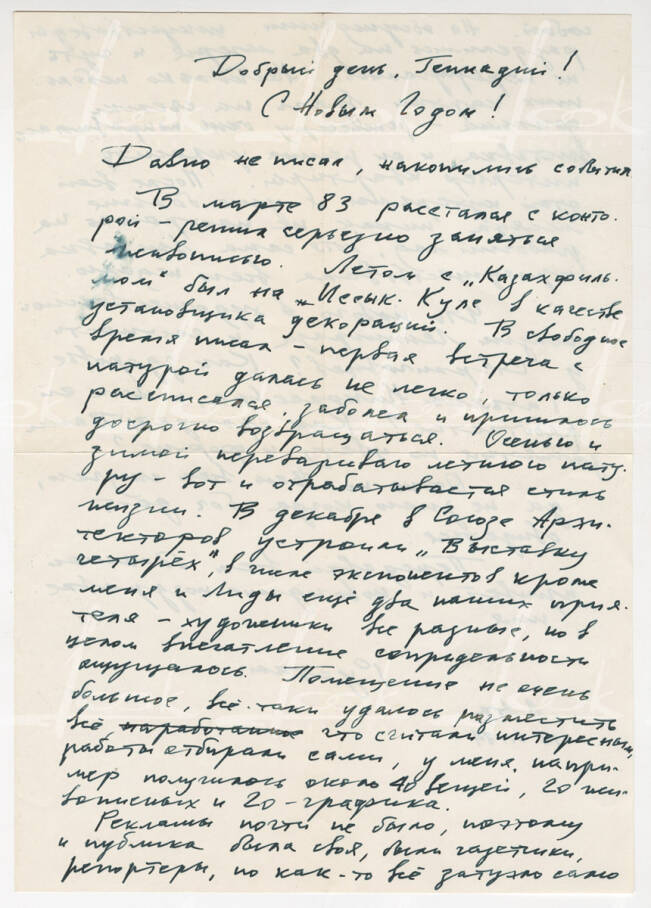 Добрый день, Геннадий!
С Новым Годом!
Давно не писал, накопились события
В марте 83 расстался с конто-
рой – решил серьезно заняться
живописью. Летом с „Казахфиль-
мом" был на „Иссык-Куле в качестве
установщика декораций. В свободное
время писал – первая встреча с
натурой далась не легко, только
расписался, заболел и пришлось
досрочно возвращаться. Осенью и
зимой перевариваю летнюю нату-
ру – вот и отрабатывается стиль
жизни. В декабре в Союзе Архи-
текторов устроили „Выставку
четырёх", в числе экспонентов кроме
меня и Лиды ещё два наших прия-
теля – художники все разные, но в
целом впечатление сопредельности
ощущалось. Помещение не очень
большое, всё-таки удалось разместить
всё наработанное что считали интересным,
работы отбирали сами, у меня, напри-
мер получилось около 40 вещей, 20 жи-
вописных и 20 – графика.
Рекламы почти не было, поэтому
и публика была своя, были газетчики,
репортеры, но как-то всё затухло само